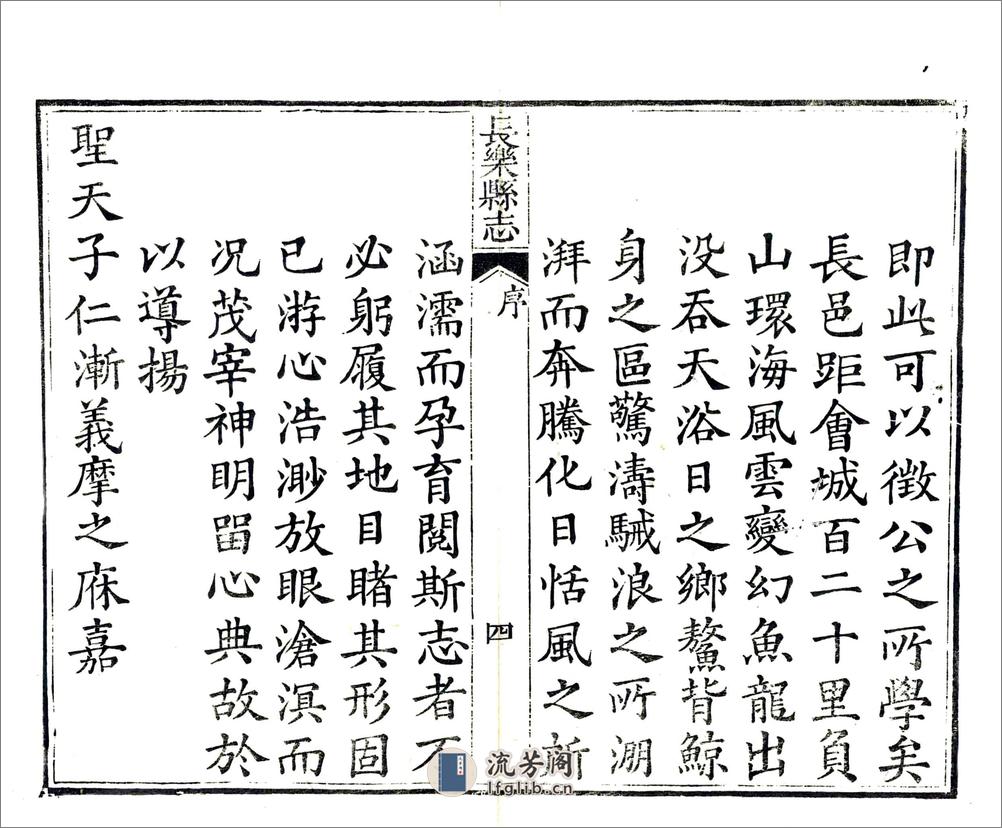 即此可以徵公之所學矣
長邑距會城百二十里負
山環海風雲變幻魚龍出
没吞天浴日之鄉鰲背鯨
身之區驚濤駴浪之所淜
湃而奔騰化日恬風之所
長樂縣志
序
四
涵濡而孕育閲斯志者不
必躬履其地目睹其形固
已游心浩渺放眼滄溟而
况茂宰神明畱心典故於
以導揚
聖天子仁漸義摩之庥嘉
流芳阁
lfglib.cn